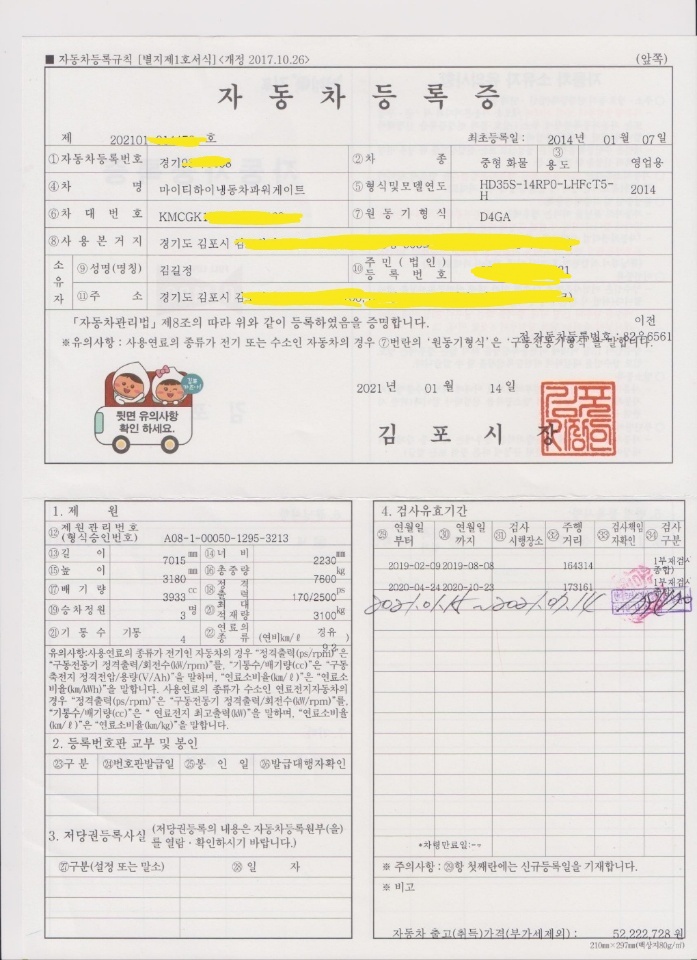 ■ 자동차등록규칙 [별지제1호서식]<개정 2017.10.26> (앞쪽)
자 동 차 등 록 증
제 202101- 호 최초등록일 : 2014년 01월 07일
①자동차등록번호 경기 ②차 종 중형 화물 ③용도 영업용
④차 명 마이티하이냉동차파워게이트 ⑤형식및모델연도 HD35S-14RP0-LHFcT5-H 2014
⑥차 대 번 호 KMCGK ⑦원 동 기 형 식 D4GA
⑧사 용 본 거 지 경기도 김포시 김
소유자 ⑨성명(명칭) 김길정 ⑩주민(법인)등록번호
⑪주 소 경기도 김포시 김
「자동차관리법」제8조의 따라 위와 같이 등록하였음을 증명합니다. 이전
전 자동차등록번호 : 82우6561
※유의사항 : 사용연료의 종류가 전기 또는 수소인 자동차의 경우 ⑦번란의 '원동기형식'은 '구동전동기형식'을 말합니다.
2021년 01월 14일
뒷면 유의사항
확인 하세요.
김 포 시 장
1. 제 원
⑫제원관리번호(형식승인번호) A08-1-00050-1295-3213
⑬길 이 7015mm ⑭너 비 2230mm
⑮높 이 3180mm ⑯총중량 7600kg
⑰배 기 량 3933cc ⑱정격출력 170/2500ps
⑲승차정원 3명 ⑳최대적재량 3100kg
㉑기 통 수 기통 4 ㉒연료의종류 경유 (연비km/ℓ) 9.2
유의사항:사용연료의 종류가 전기인 자동차의 경우 "정격출력(ps/rpm)"은
"구동전동기 정격출력/회전수(kW/rpm)"를, "기통수/배기량(cc)"은 "구동
축전지 정격전압/용량(V/Ah)"을 말하며, "연료소비율(km/ℓ)"은 "연료소
비율(km/kWh)"을 말합니다. 사용연료의 종류가 수소인 연료전지자동차의
경우 "정격출력(ps/rpm)"은 "구동전동기 정격출력/회전수(kW/rpm)"를,
"기통수/배기량(cc)"은 " 연료전지 최고출력(kW)"을 말하며, "연료소비율
(km/ℓ)"은 "연료소비율(km/kg)"을 말합니다.
2. 등록번호판 교부 및 봉인
㉓구 분 ㉔번호판발급일 ㉕봉 인 일 ㉖발급대행자확인
3. 저당권등록사실 (저당권등록의 내용은 자동차등록원부(을)
를 열람ㆍ확인하시기 바랍니다.)
㉗구분(설정 또는 말소) ㉘일 자
4. 검사유효기간
㉙연월일부터 ㉚연월일까지 ㉛검사시행장소 ㉜주행거리 ㉝검사책임자확인 ㉞검사구분
2019-02-09 2019-08-08 164314
2020-04-24 2020-10-23 173161
2021.01.15 ~ 2021.07.14
*차령만료일:--
※ 주의사항 : ㉙항 첫째란에는 신규등록일을 기재합니다.
※ 비고
자동차 출고(취득)가격(부가세제외) : 52,222,728 원
210mm×297mm(백상지80g/㎡)